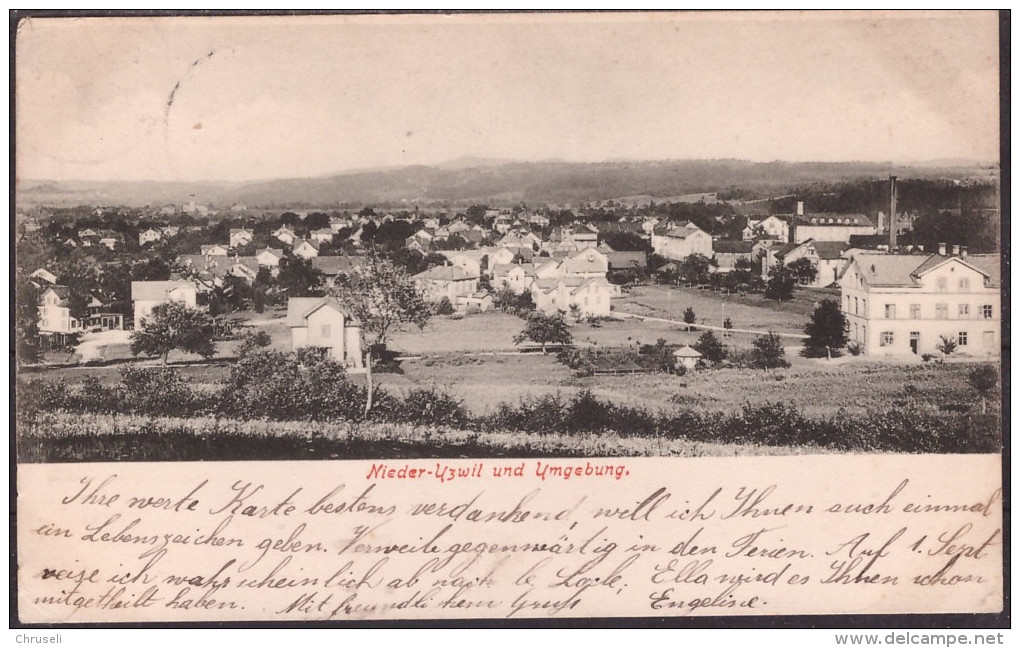 Nieder-Uzwil und Umgebung.
Ihre werte Karte bestens verdankend, will ich Ihnen auch einmal
ein Lebenszeichen geben. Verweile gegenwärtig in den Ferien. Auf 1. Sept
reise ich wahrscheinlich ab nach le Locle, Ella wird es Ihnen schon
mitgetheilt haben. Mit freundlichem Gruss Engelise.
Chruseli
delcampe.net